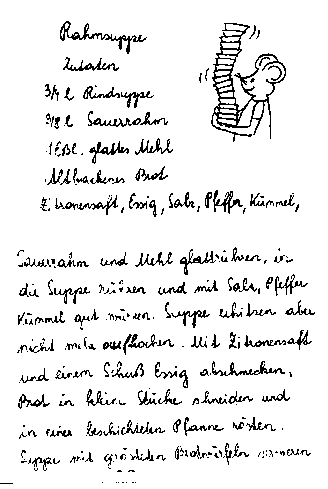 Rahmsuppe
Zutaten
3/4 l Rindsuppe
3/8 l Sauerrahm
1 Eßl. glattes Mehl
Altbackenes Brot
Zitronensaft, Essig, Salz, Pfeffer, Kümmel,
Sauerrahm und Mehl glattrühren, in
die Suppe rühren und mit Salz, Pfeffer
Kümmel gut würzen. Suppe erhitzen aber
nicht mehr aufkochen. Mit Zitronensaft
und einem Schuß Essig abschmecken,
Brot in kleine Stücke schneiden und
in einer beschichteten Pfanne rösten.
Suppe mit gerösteten Brotwürfeln servieren